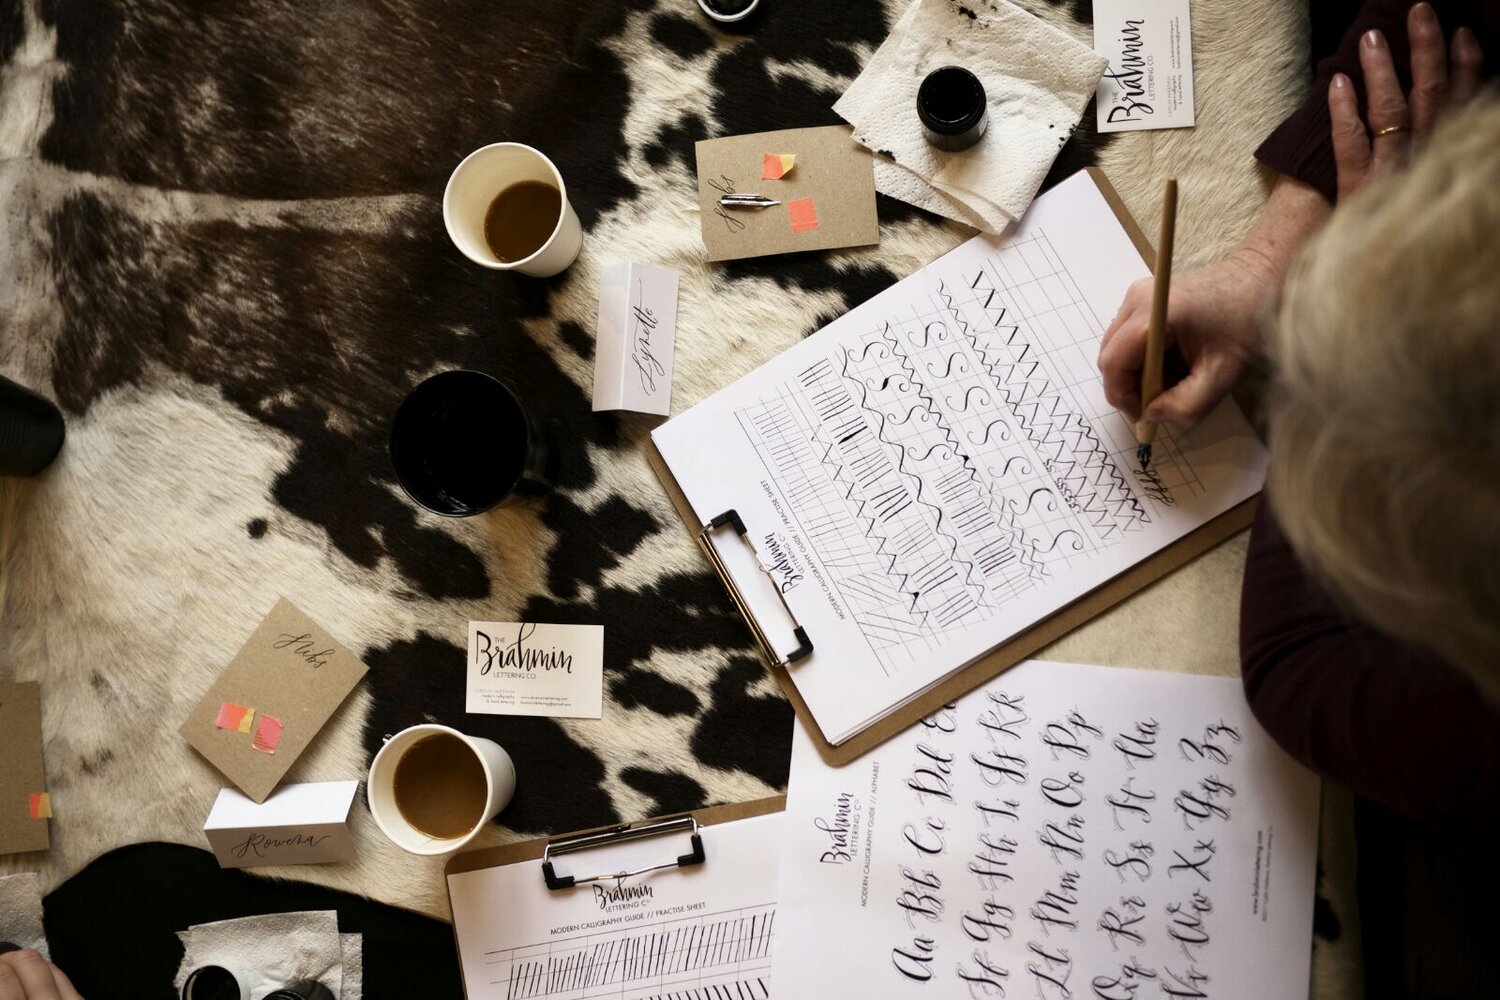 THE
Brahmin
LETTERING CO.
modern calligraphy
& hand lettering
Nibs
Lynette
Brahmin
LETTERING Cº
MODERN CALLIGRAPHY GUIDE // PRACTISE SHEET
Nibs
THE
Brahmin
LETTERING CO.
modern calligraphy
& hand lettering
www.brahminlettering.com
brahminlettering@gmail.com
Rowena
Brahmin
LETTERING Cº
MODERN CALLIGRAPHY GUIDE // PRACTISE SHEET
Brahmin
LETTERING Cº
MODERN CALLIGRAPHY GUIDE // ALPHABET
Aa Bb Cc Dd Ee
Ff Gg Hh Ii Jj Kk
Ll Mm Nn Oo Pp
Qq Rr Ss Tt Uu
Vv Ww Xx Yy Zz
www.brahminlettering.com